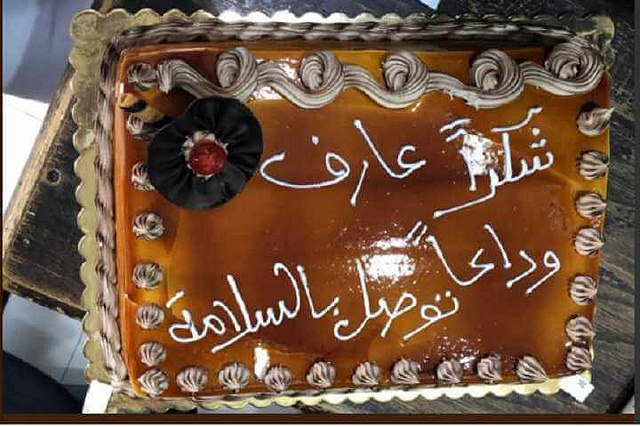 شكراً عارف
وداعاً
توصل بالسلامة